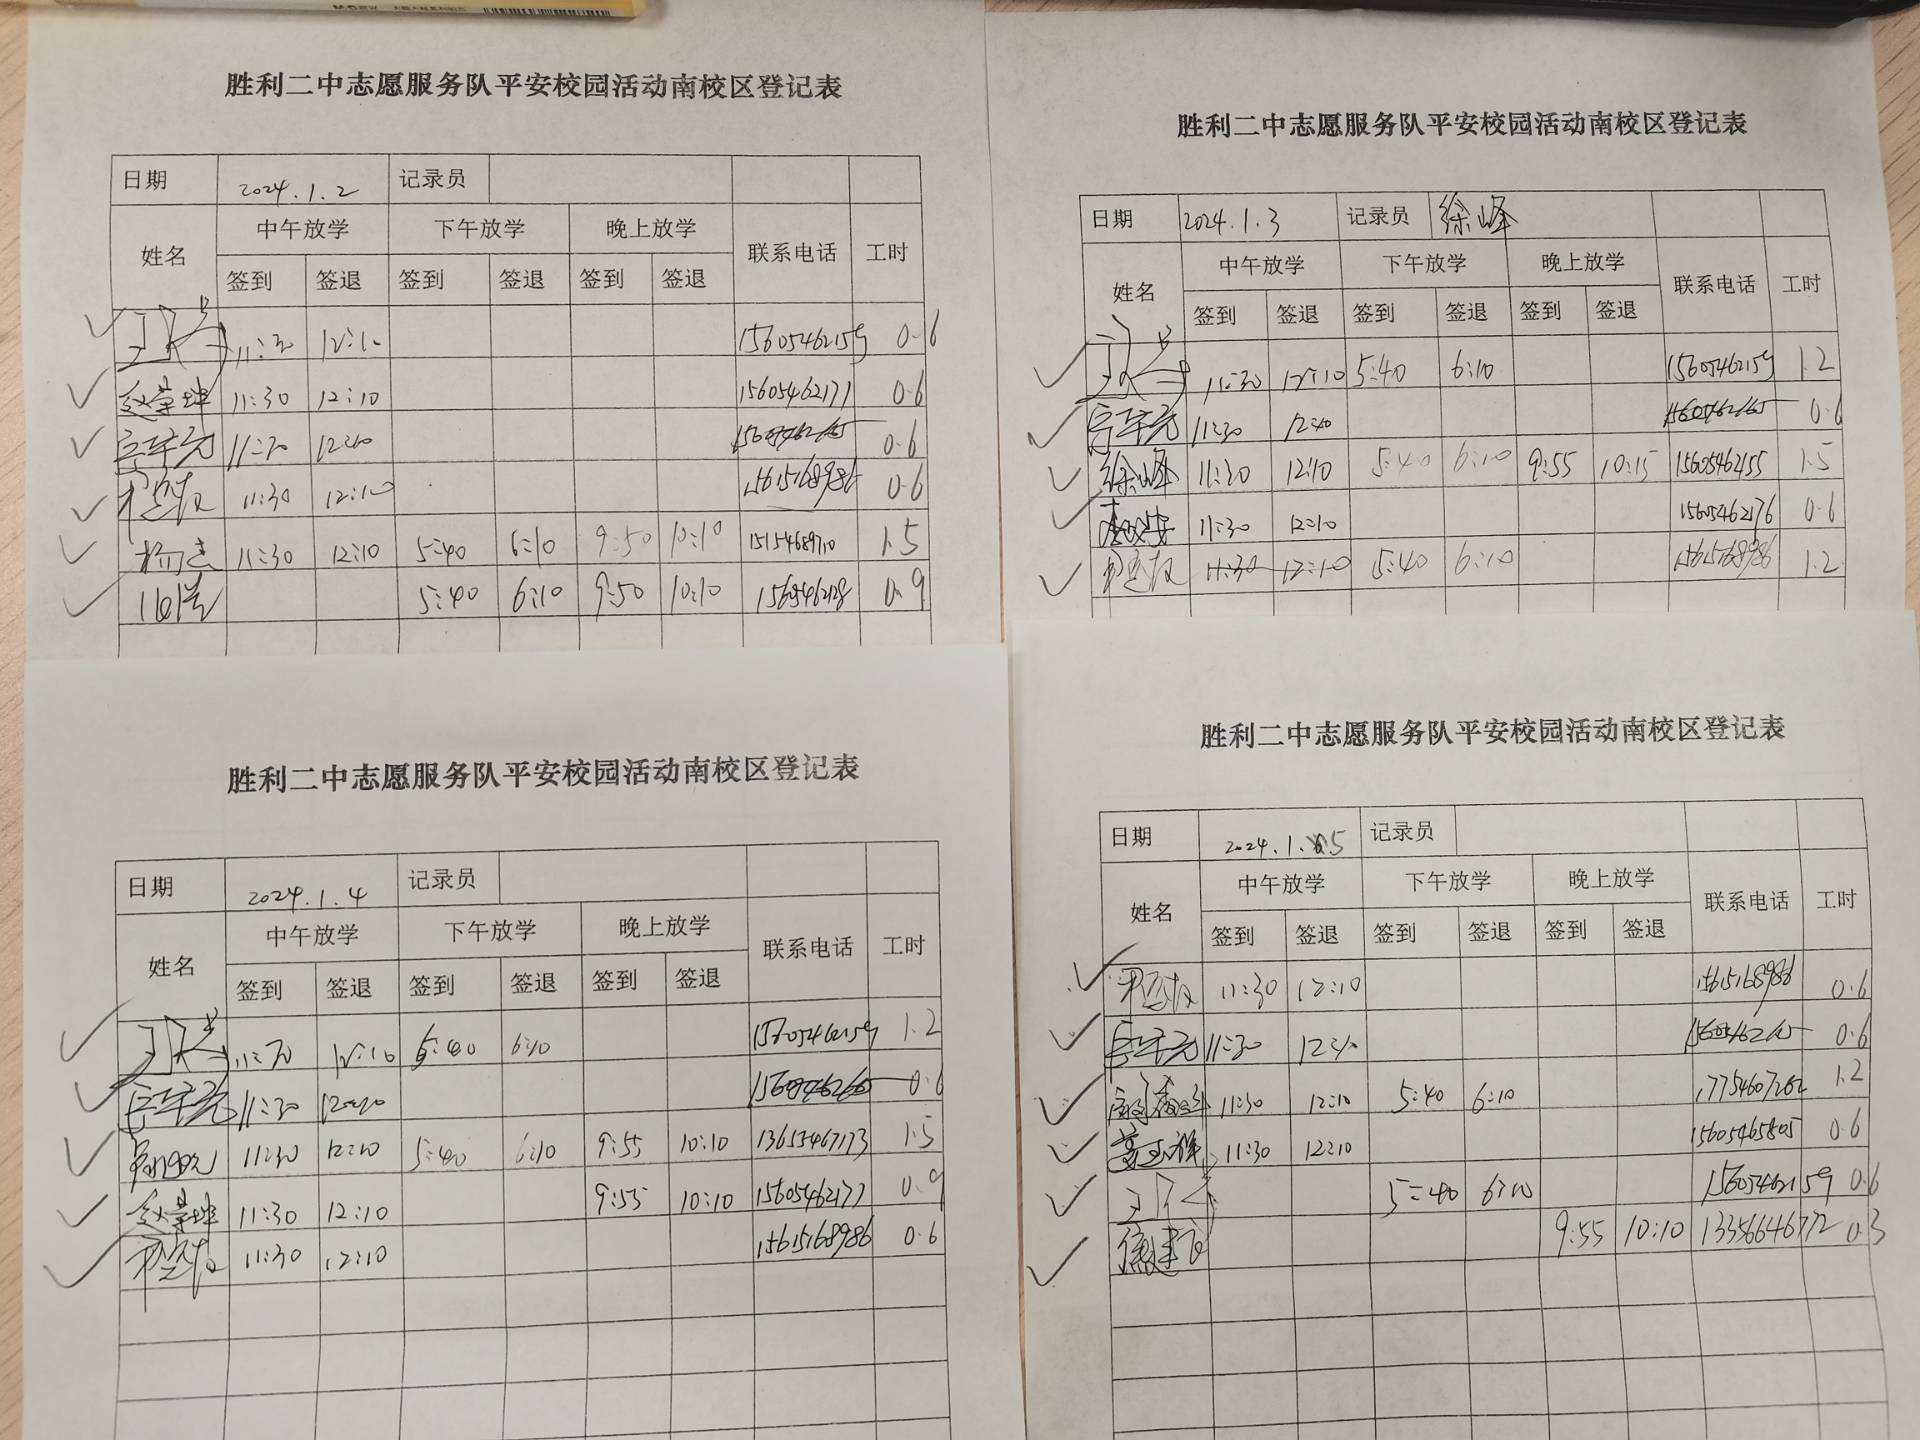 胜利二中志愿服务队平安校园活动南校区登记表
日期 2024.1.2 记录员
姓名 中午放学 下午放学 晚上放学 联系电话 工时
签到 签退 签到 签退 签到 签退
11:30 12:10 15605462159 0.6
赵荣坤 11:30 12:10 15605462171 0.6
11:30 12:10 0.6
11:30 12:10 15615168986 0.6
杨杰 11:30 12:10 5:40 6:10 9:50 10:10 1.5
5:40 6:10 9:50 10:10 0.9
胜利二中志愿服务队平安校园活动南校区登记表
日期 2024.1.3 记录员 徐峰
姓名 中午放学 下午放学 晚上放学 联系电话 工时
签到 签退 签到 签退 签到 签退
11:30 12:10 5:40 6:10 15605462159 1.2
11:30 12:10 0.6
徐峰 11:30 12:10 5:40 6:10 9:55 10:15 15605462155 1.5
11:30 12:10 15605462176 0.6
11:30 12:10 5:40 6:10 15615168986 1.2
胜利二中志愿服务队平安校园活动南校区登记表
日期 2024.1.4 记录员
姓名 中午放学 下午放学 晚上放学 联系电话 工时
签到 签退 签到 签退 签到 签退
11:30 12:10 6:10 15605462159 1.2
11:30 12:10 0.6
11:30 12:10 5:40 6:10 9:55 10:10 13653467173 1.5
赵荣坤 11:30 12:10 9:55 10:10 15605462171 0.9
11:30 12:10 15615168986 0.6
胜利二中志愿服务队平安校园活动南校区登记表
日期 2024.1.5 记录员
姓名 中午放学 下午放学 晚上放学 联系电话 工时
签到 签退 签到 签退 签到 签退
11:30 12:10 15615168986 0.6
11:30 12:10 0.6
11:30 12:10 5:40 6:10 17754607262 1.2
11:30 12:10 15605465805 0.6
5:40 6:10 15605462159 0.6
9:55 10:10 13356646772 0.3